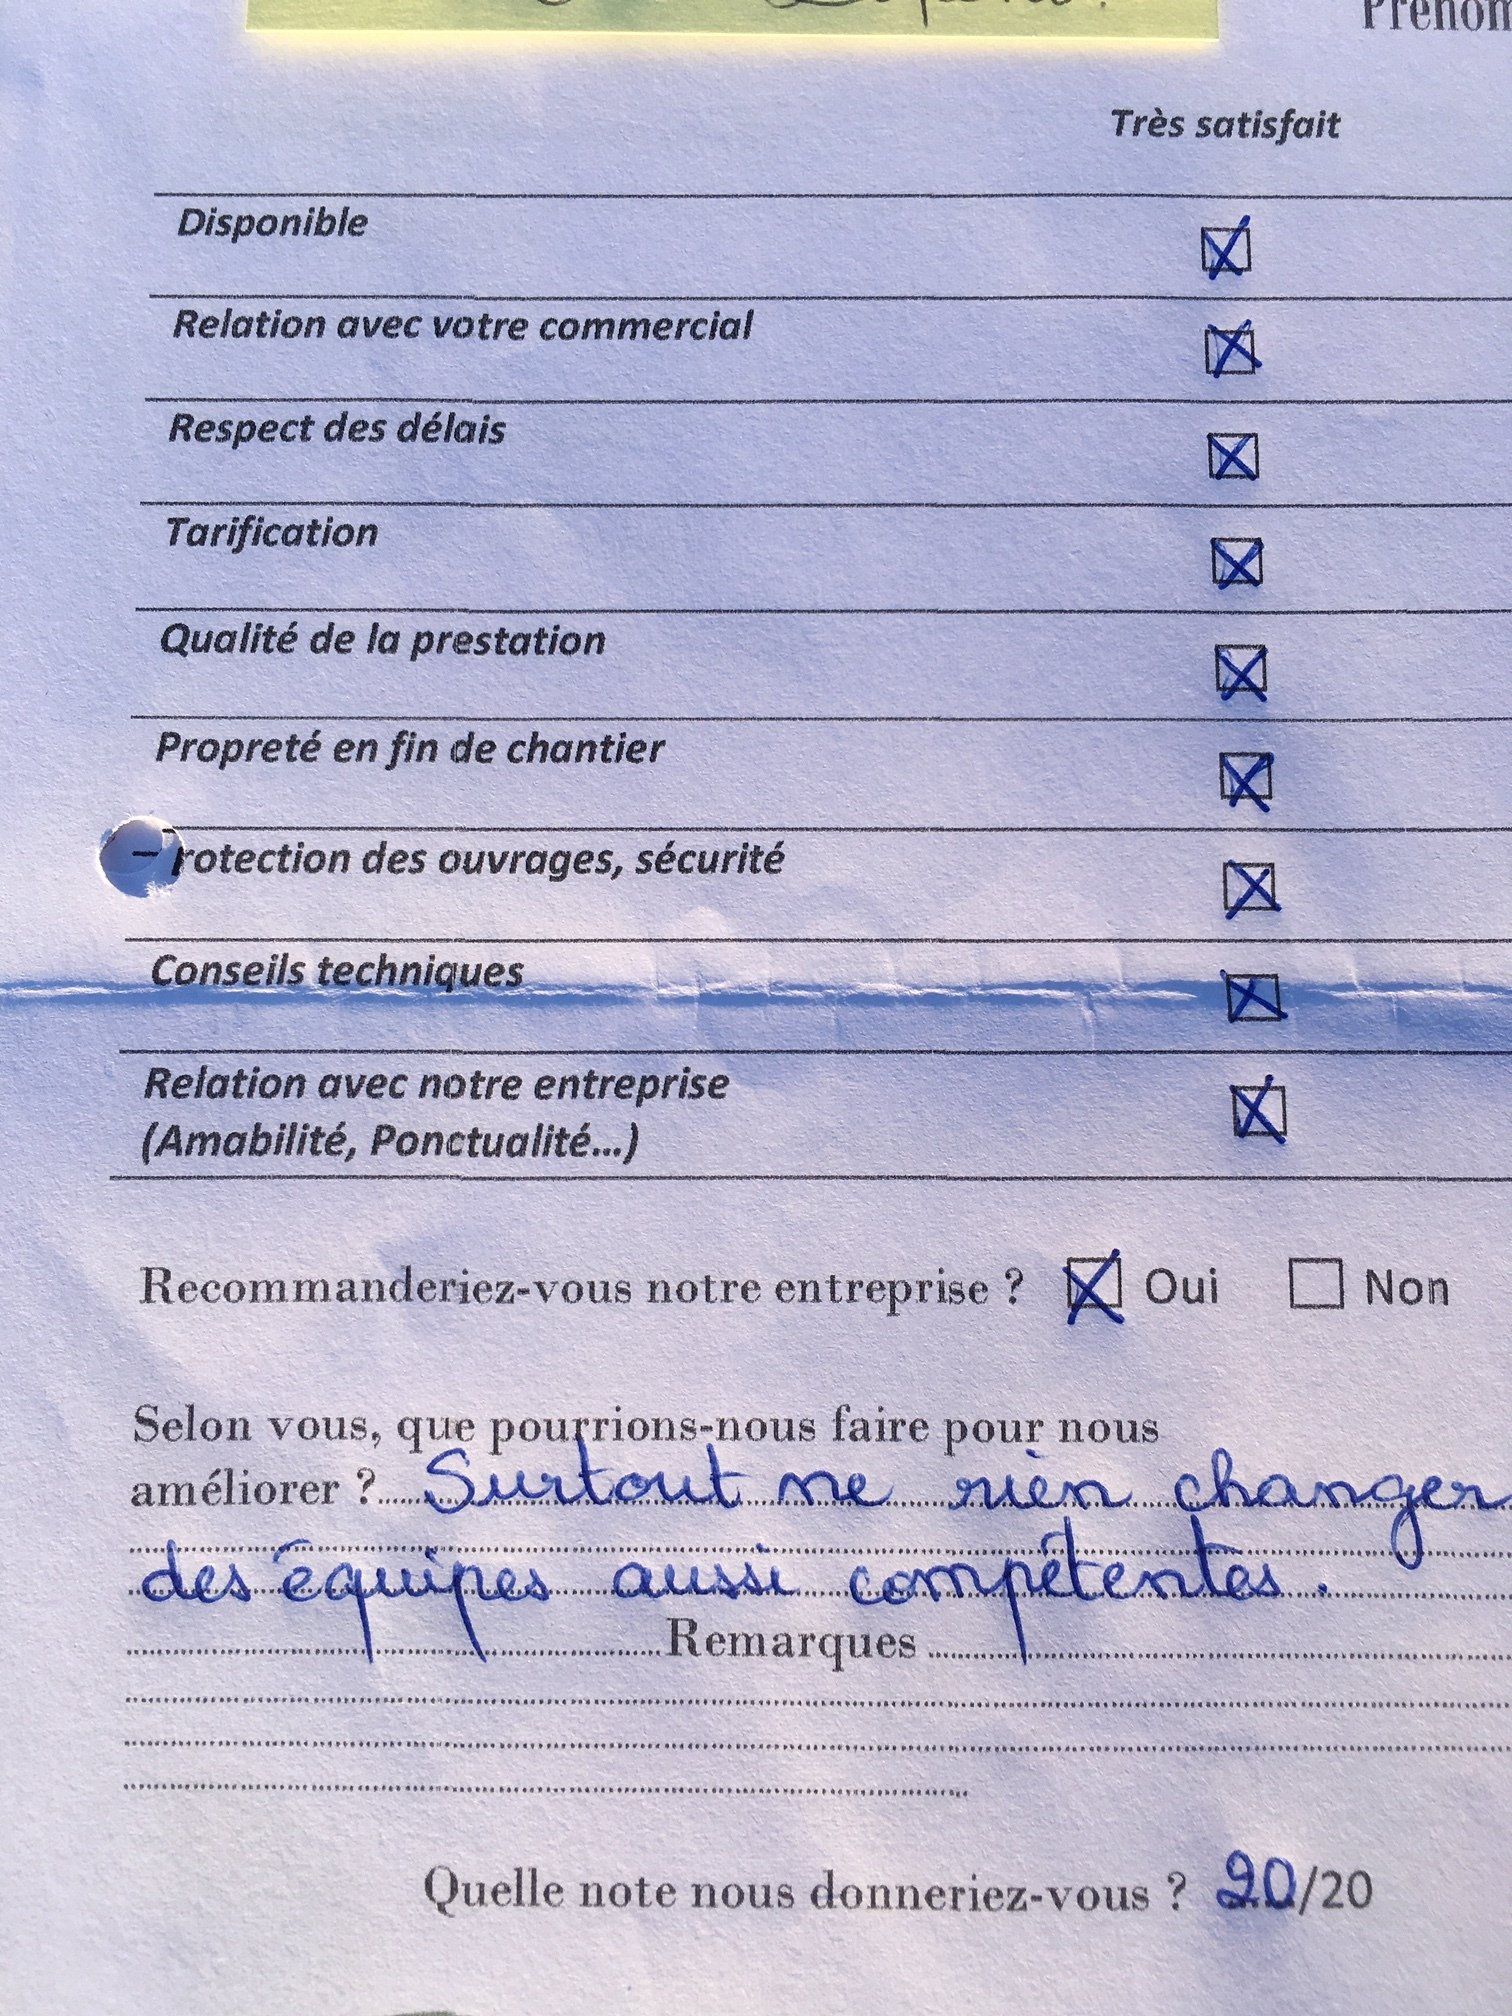 Prénom
Très satisfait
Disponible
Relation avec votre commercial
Respect des délais
Tarification
Qualité de la prestation
Propreté en fin de chantier
rotection des ouvrages, sécurité
Conseils techniques
Relation avec notre entreprise
(Amabilité, Ponctualité...)
Recommanderiez-vous notre entreprise ? Oui Non
Selon vous, que pourrions-nous faire pour nous
améliorer ? Surtout ne rien changer
des équipes aussi compétentes.
Remarques
Quelle note nous donneriez-vous ? 20/20